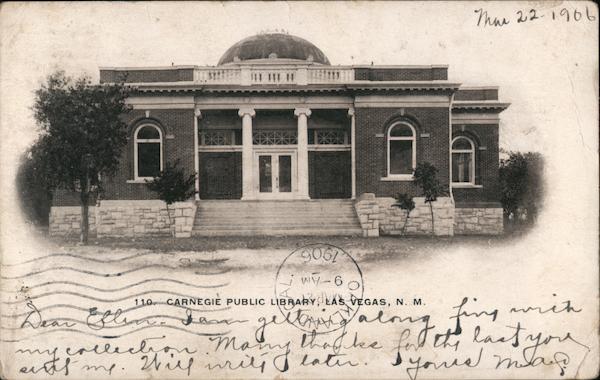 Mar 22 - 1906
OAKLAND, CAL.
9-AM
1906
110. CARNEGIE PUBLIC LIBRARY, LAS VEGAS, N. M.
Dear Ellen - I am getting along fine with
my collection. Many thanks for the last you
sent me. Will write later. Yours